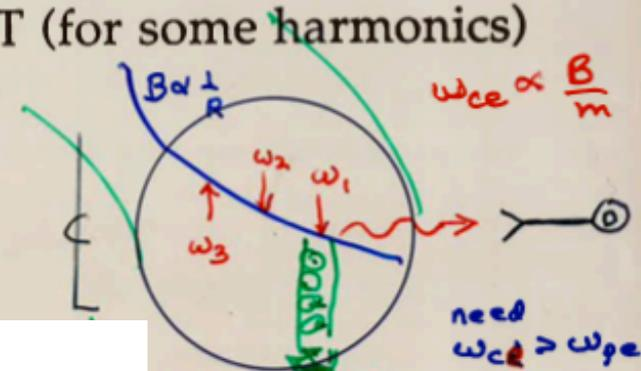 T (for some harmonics)
B ∝ 1/R
ω_ce ∝ B/m
ω₂
ω₁
ω₃
D
need
ω_ce > ω_pe